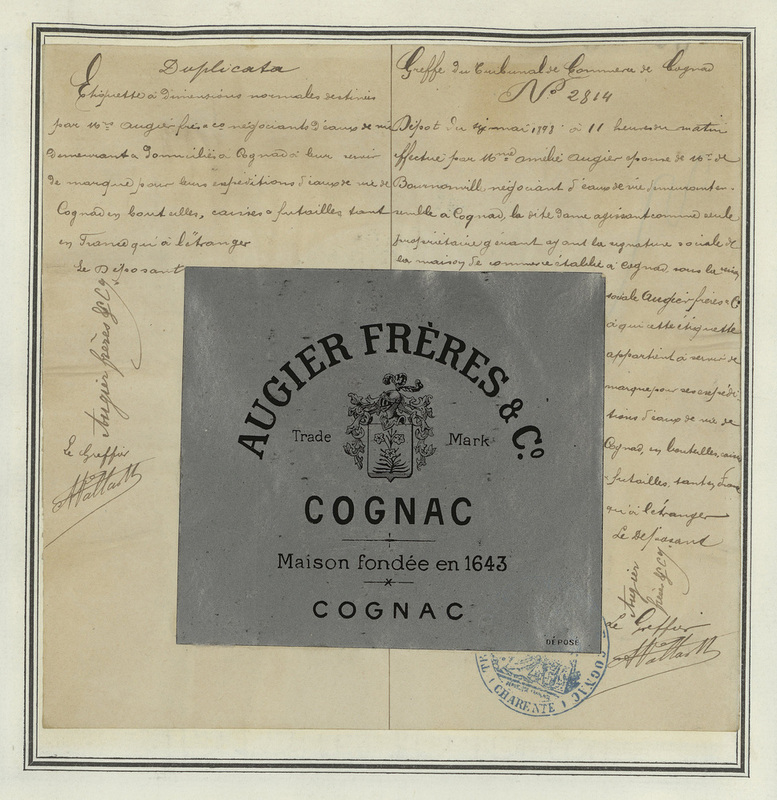 Duplicata
Etiquette à dimensions normales destinée
par Mrs Augier frères & Co négociants d'eaux de vie
demeurant & domiciliés à Cognac à leur servir
de marque pour leurs expéditions d'eaux de vie de
Cognac en bouteilles, caisses & futailles tant
en France qu'à l'étranger
Le Déposant
Augier frères & Co
Le Greffier
Greffe du Tribunal de Commerce de Cognac
No 2814
Dépôt du mai à 11 heures du matin
effectué par Mme Amélie Augier épouse de Mr de
Bournonville, négociant d'eaux de vie demeurant en-
semble à Cognac, la dite dame agissant comme seule
propriétaire gérant ayant la signature sociale de
la maison de commerce établie à Cognac, sous la
sociale Augier frères & Co
à qui cette étiquette
appartient à servir de
marque pour ses expédi-
tions d'eaux de vie de
Cognac, en bouteilles,
futailles, tant en
qu'à l'étranger
Le Déposant
Augier frères & Co
Le Greffier
AUGIER FRÈRES & Co.
Trade Mark
COGNAC
Maison fondée en 1643
COGNAC
DÉPOSÉ
COGNAC
CHARENTE